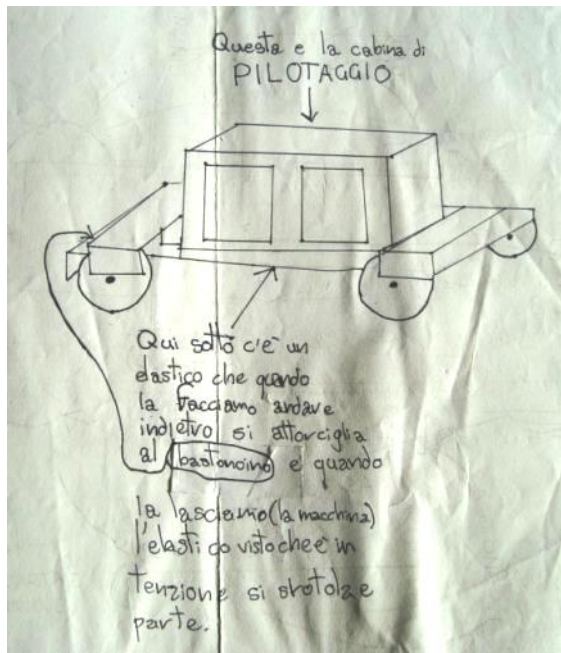 Questa e la cabina di
PILOTAGGIO
Qui sotto c'è un
elastico che quando
la facciamo andare
indietro si attorciglia
al bastoncino e quando
la lasciamo (la macchina)
l'elastico visto che è in
tenzione si srotola e
parte.